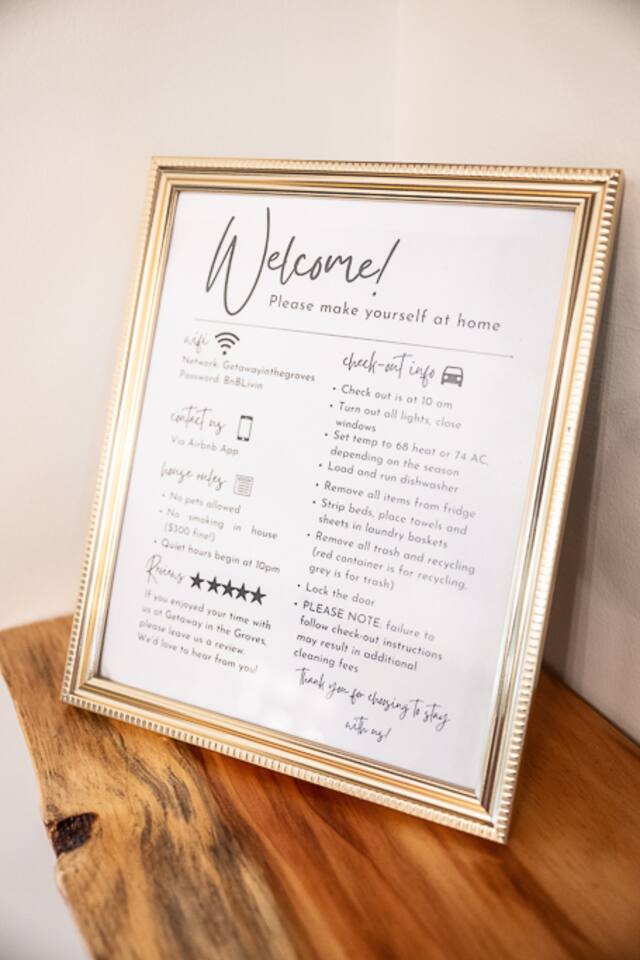 Welcome!
Please make yourself at home
wifi
Network: Getawayinthegroves
Password: BnBLivin
contact us
Via Airbnb App
house rules
• No pets allowed
• No smoking in house
($300 fine!)
• Quiet hours begin at 10pm
Reviews
If you enjoyed your time with
us at Getaway in the Groves,
please leave us a review.
We'd love to hear from you!
check-out info
• Check out is at 10 am
• Turn out all lights, close
windows
• Set temp to 68 heat or 74 AC,
depending on the season
• Load and run dishwasher
• Remove all items from fridge
• Strip beds, place towels and
sheets in laundry baskets
• Remove all trash and recycling
(red container is for recycling,
grey is for trash)
• Lock the door
• PLEASE NOTE: failure to
follow check-out instructions
may result in additional
cleaning fees
thank you for choosing to stay
with us!